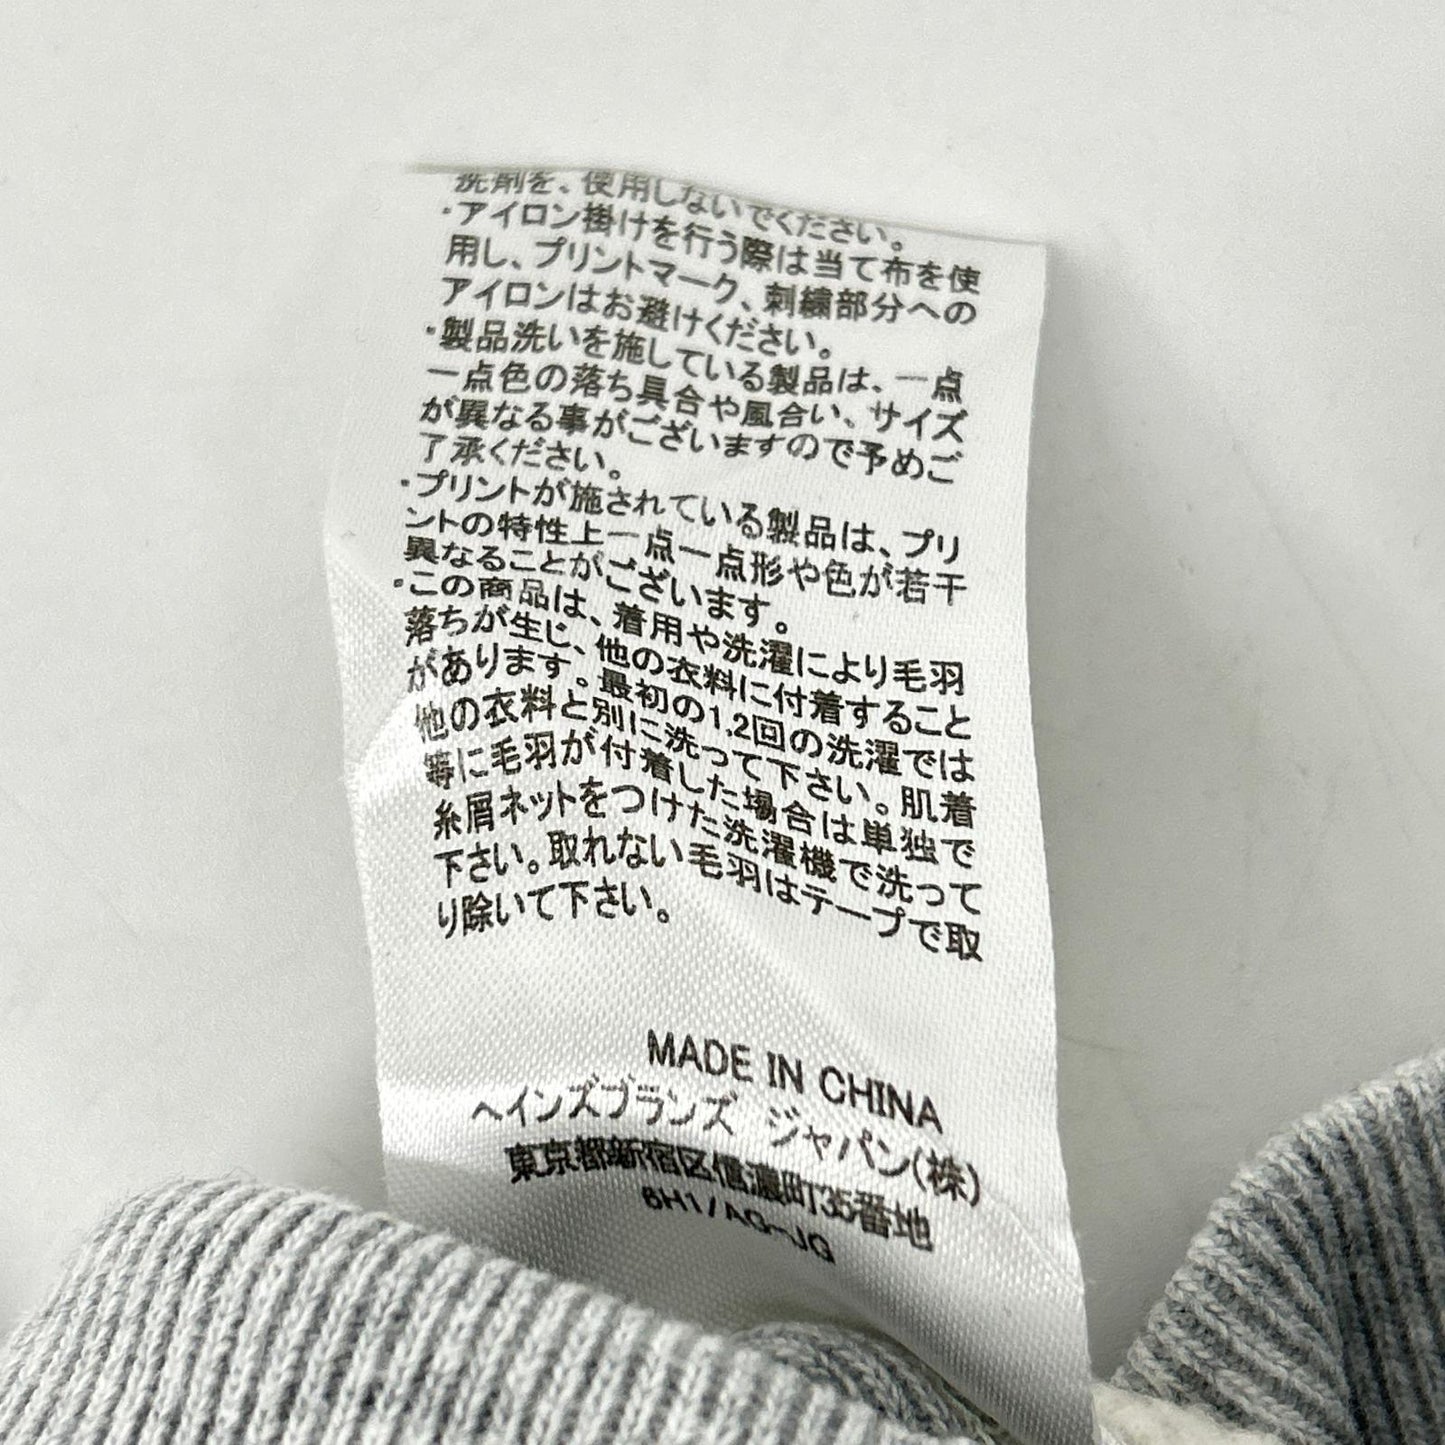 洗剤を、使用しないでください。
・アイロン掛けを行う際は当て布を使
用し、プリントマーク、刺繍部分への
アイロンはお避けください。
・製品洗いを施している製品は、一点
一点色の落ち具合や風合い、サイズ
が異なる事がございますので予めご
了承ください。
・プリントが施されている製品は、プリ
ントの特性上一点一点形や色が若干
異なることがございます。
・この商品は、着用や洗濯により毛羽
落ちが生じ、他の衣料に付着すること
があります。最初の1,2回の洗濯では
他の衣料と別に洗って下さい。肌着
等に毛羽が付着した場合は単独で
糸屑ネットをつけた洗濯機で洗って
下さい。取れない毛羽はテープで取
り除いて下さい。
MADE IN CHINA
ヘインズブランズ ジャパン(株)
東京都新宿区信濃町35番地
6H1/AG-JG